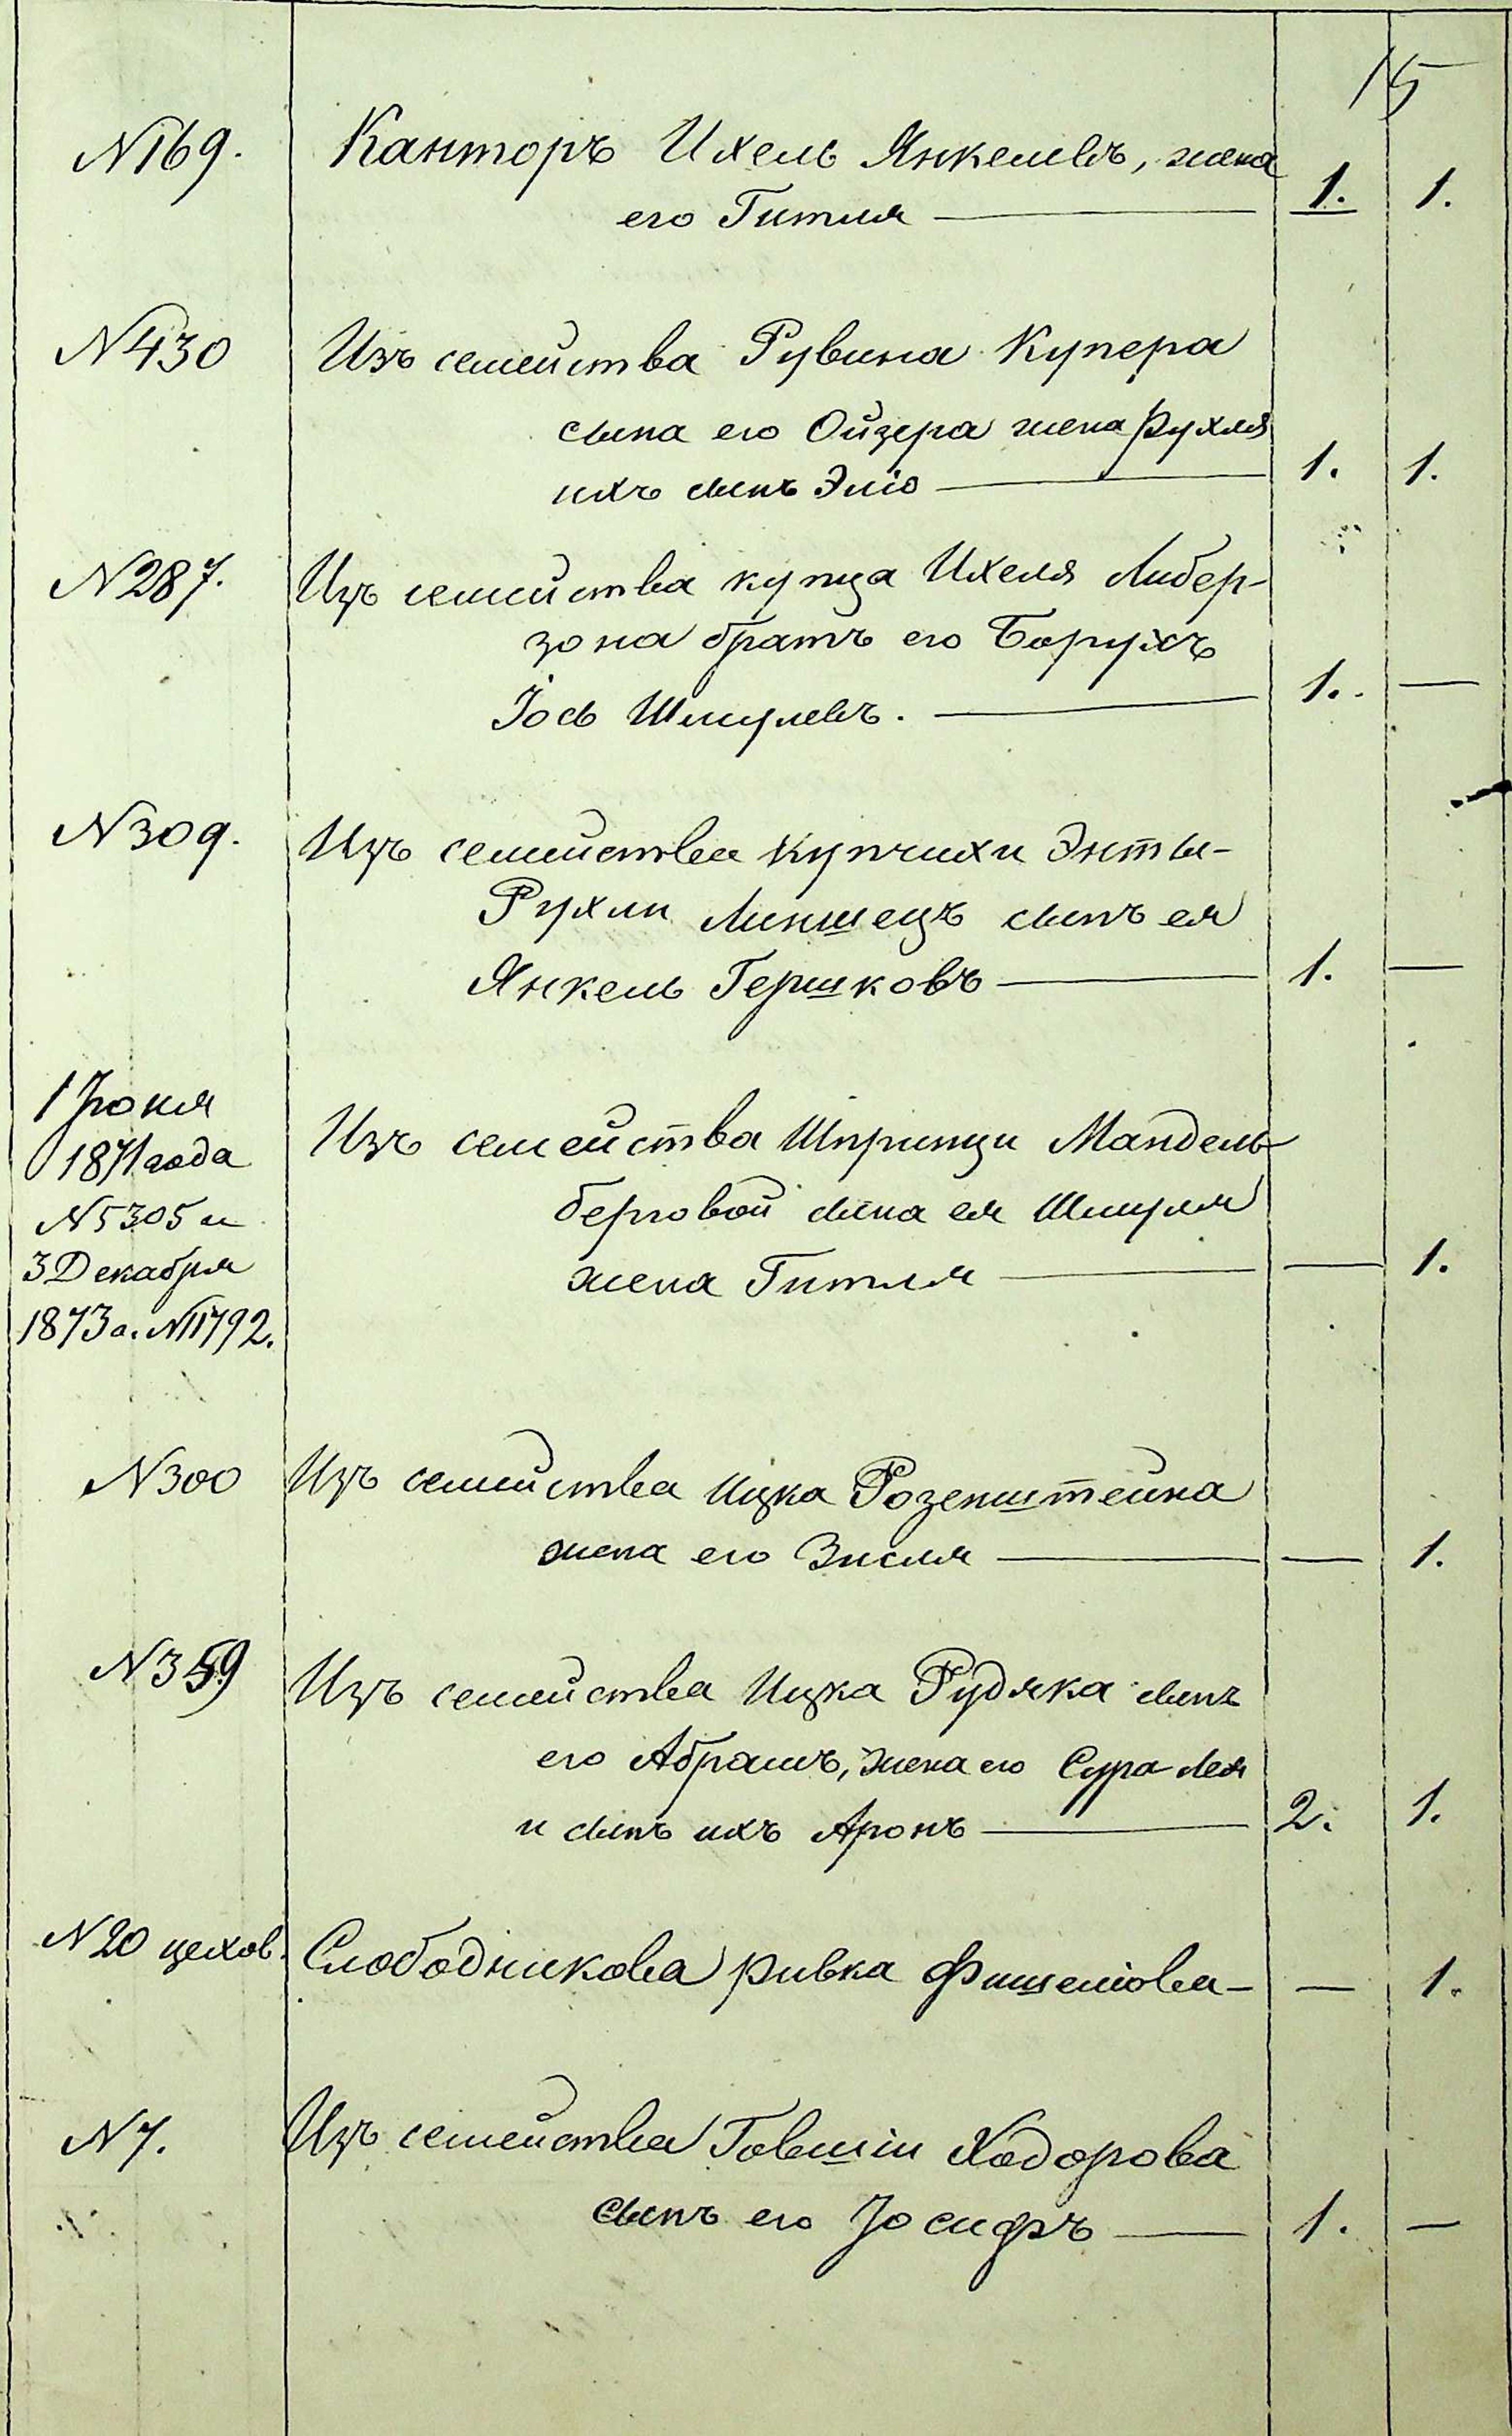 15
№169. Канторъ Ихель Янкелевъ, жена
его Гитля — 1. 1.
№430 Изъ семейства Рувина Купера
сына его Ойзера жена Рухля
ихъ сынъ Эліо — 1. 1.
№287. Изъ семейства купца Ихеля Либер-
зона братъ его Борухъ
Іось Шмулевъ. — 1. —
№309. Изъ семейства купчихи Энты-
Рухли Линшецъ сынъ ея
Янкель Гершковъ — 1. —
1 Іюня
1871 года
№5305 и
3 Декабря
1873 г. №11792.
Изъ семейства Шпринци Мандель-
берговой сына ея Шмуля
жена Гитля — — 1.
№300 Изъ семейства Ицка Розенштейна
жена его Зисля — — 1.
№359 Изъ семейства Ицка Рудяка сынъ
его Абрамъ, жена его Сура-Лея
и сынъ ихъ Аронъ — 2. 1.
№20 цехов. Слободникова Ривка Фишеліова — — 1.
№7. Изъ семейства Говшіи Ходорова
сынъ его Іосифъ — 1. —